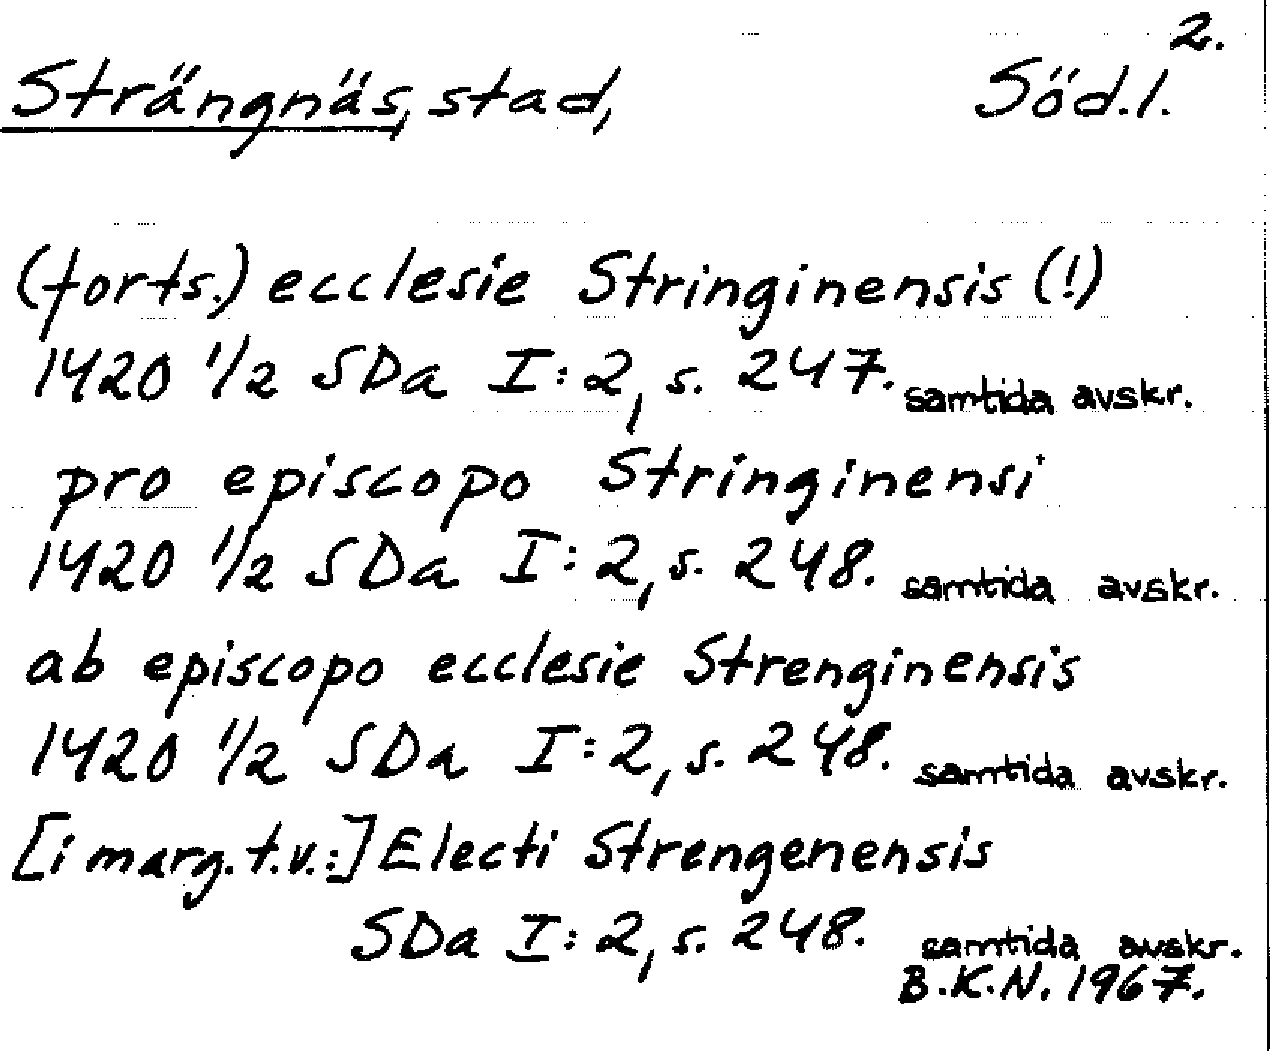 2.
Strängnäs, stad, Söd.l.
(forts.) ecclesie Stringinensis (!)
1420 1/2 SDa I:2, s. 247. samtida avskr.
pro episcopo Stringinensi
1420 1/2 SDa I:2, s. 248. samtida avskr.
ab episcopo ecclesie Strenginensis
1420 1/2 SDa I:2, s. 248. samtida avskr.
[i marg. t.v.:] Electi Strengenensis
SDa I:2, s. 248. samtida avskr.
B.K.N. 1967.